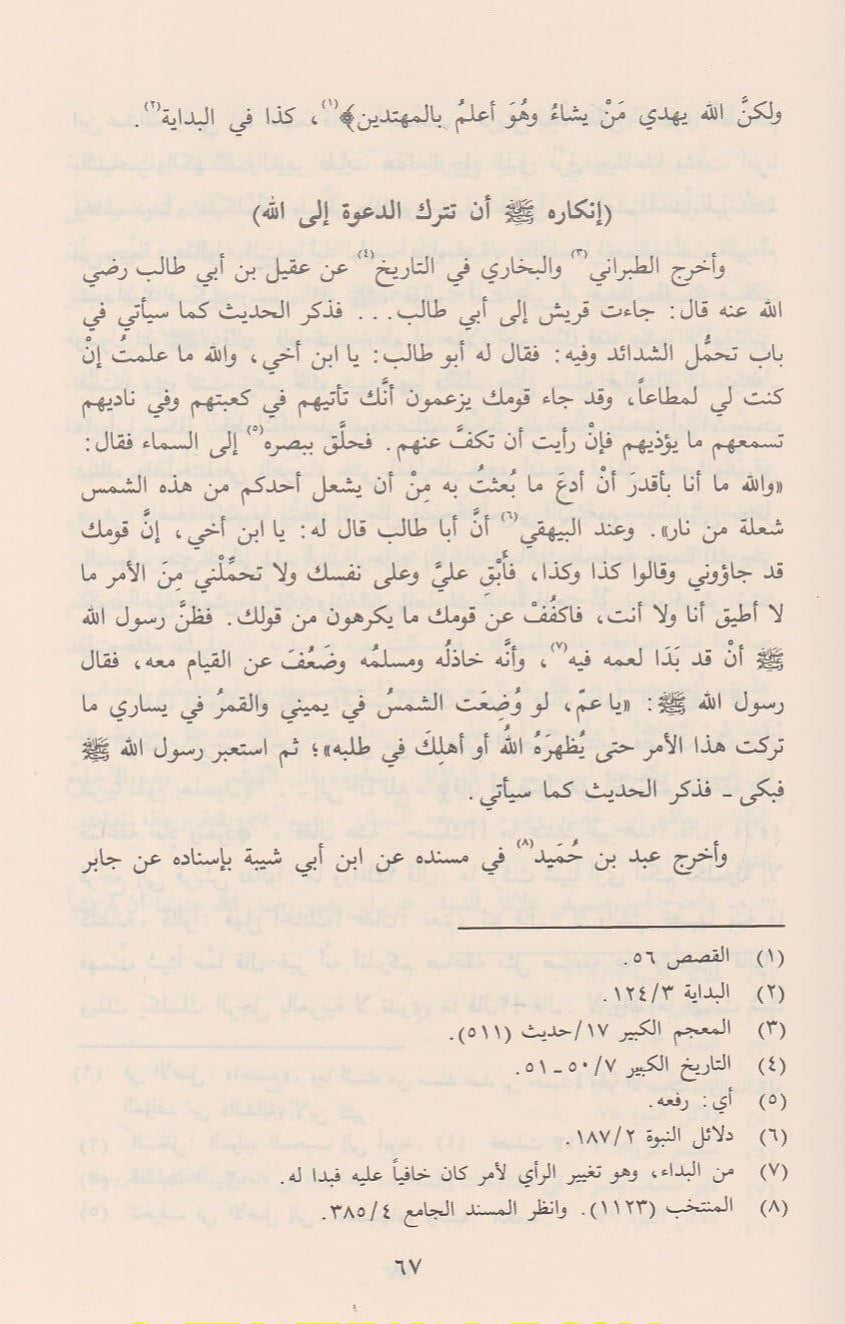 ولكنَّ الله يهدي مَنْ يشاءُ وهُوَ أعلمُ بالمهتدين﴾(١)، كذا في البداية(٢).
(إنكاره ﷺ أن تترك الدعوة إلى الله)
وأخرج الطبراني(٣) والبخاري في التاريخ(٤) عن عقيل بن أبي طالب رضي
الله عنه قال: جاءت قريش إلى أبي طالب... فذكر الحديث كما سيأتي في
باب تحمُّل الشدائد وفيه: فقال له أبو طالب: يا ابن أخي، والله ما علمتُ إنْ
كنت لي لمطاعاً، وقد جاء قومك يزعمون أنَّك تأتيهم في كعبتهم وفي ناديهم
تسمعهم ما يؤذيهم فإنْ رأيت أن تكفَّ عنهم. فحلَّق ببصره(٥) إلى السماء فقال:
«والله ما أنا بأقدرَ أنْ أدعَ ما بُعثتُ به مِنْ أن يشعل أحدكم من هذه الشمس
شعلة من نار». وعند البيهقي(٦) أنَّ أبا طالب قال له: يا ابن أخي، إنَّ قومك
قد جاؤوني وقالوا كذا وكذا، فأَبْقِ عليَّ وعلى نفسك ولا تحمِّلْني مِنَ الأمر ما
لا أطيق أنا ولا أنت، فاكفُفْ عن قومك ما يكرهون من قولك. فظنَّ رسول الله
ﷺ أنْ قد بَدَا لعمه فيه(٧)، وأنَّه خاذلُه ومسلمُه وضَعُفَ عن القيام معه، فقال
رسول الله ﷺ: «يا عمّ، لو وُضِعَت الشمسُ في يميني والقمرُ في يساري ما
تركت هذا الأمر حتى يُظهرَهُ اللهُ أو أهلِكَ في طلبه»؛ ثم استعبر رسول الله ﷺ
فبكى ـ فذكر الحديث كما سيأتي.
وأخرج عبد بن حُمَيد(٨) في مسنده عن ابن أبي شيبة بإسناده عن جابر
(١) القصص ٥٦.
(٢) البداية ١٢٤/٣.
(٣) المعجم الكبير ١٧/حديث (٥١١).
(٤) التاريخ الكبير ٥٠/٧ ـ ٥١.
(٥) أي: رفعه.
(٦) دلائل النبوة ١٨٧/٢.
(٧) من البداء، وهو تغيير الرأي لأمر كان خافياً عليه فبدا له.
(٨) المنتخب (١١٢٣). وانظر المسند الجامع ٣٨٥/٤.
٦٧